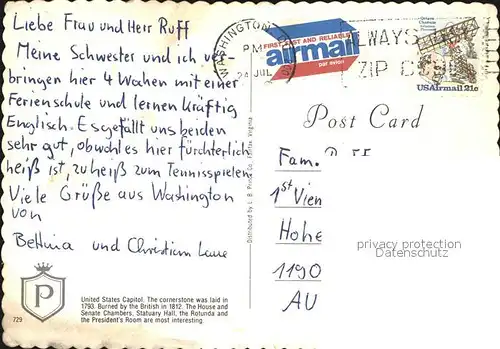 Liebe Frau und Herr Ruff
Meine Schwester und ich ver-
bringen hier 4 Wochen mit einer
Ferienschule und lernen kräftig
Englisch. Es gefällt uns beiden
sehr gut, obwohl es hier fürchterlich
heiß ist, zu heiß zum Tennisspielen.
Viele Grüße aus Washington
von
Bettina und Christian
P
United States Capitol. The cornerstone was laid in
1793. Burned by the British in 1812. The House and
Senate Chambers, Statuary Hall, the Rotunda and
the President's Room are most interesting.
729
Distributed by L. B. Prince Co., Fairfax, Virginia
WASHINGTON
PM
24 JUL
FIRST FAST AND RELIABLE
airmail
par avion
ALWAYS
ZIP CODE
Octave
Chanute
Aviation
Pioneer
USAirmail 21c
Post Card
Fam.
1st Vien
Hohe
1190
AU
privacy protection
Datenschutz